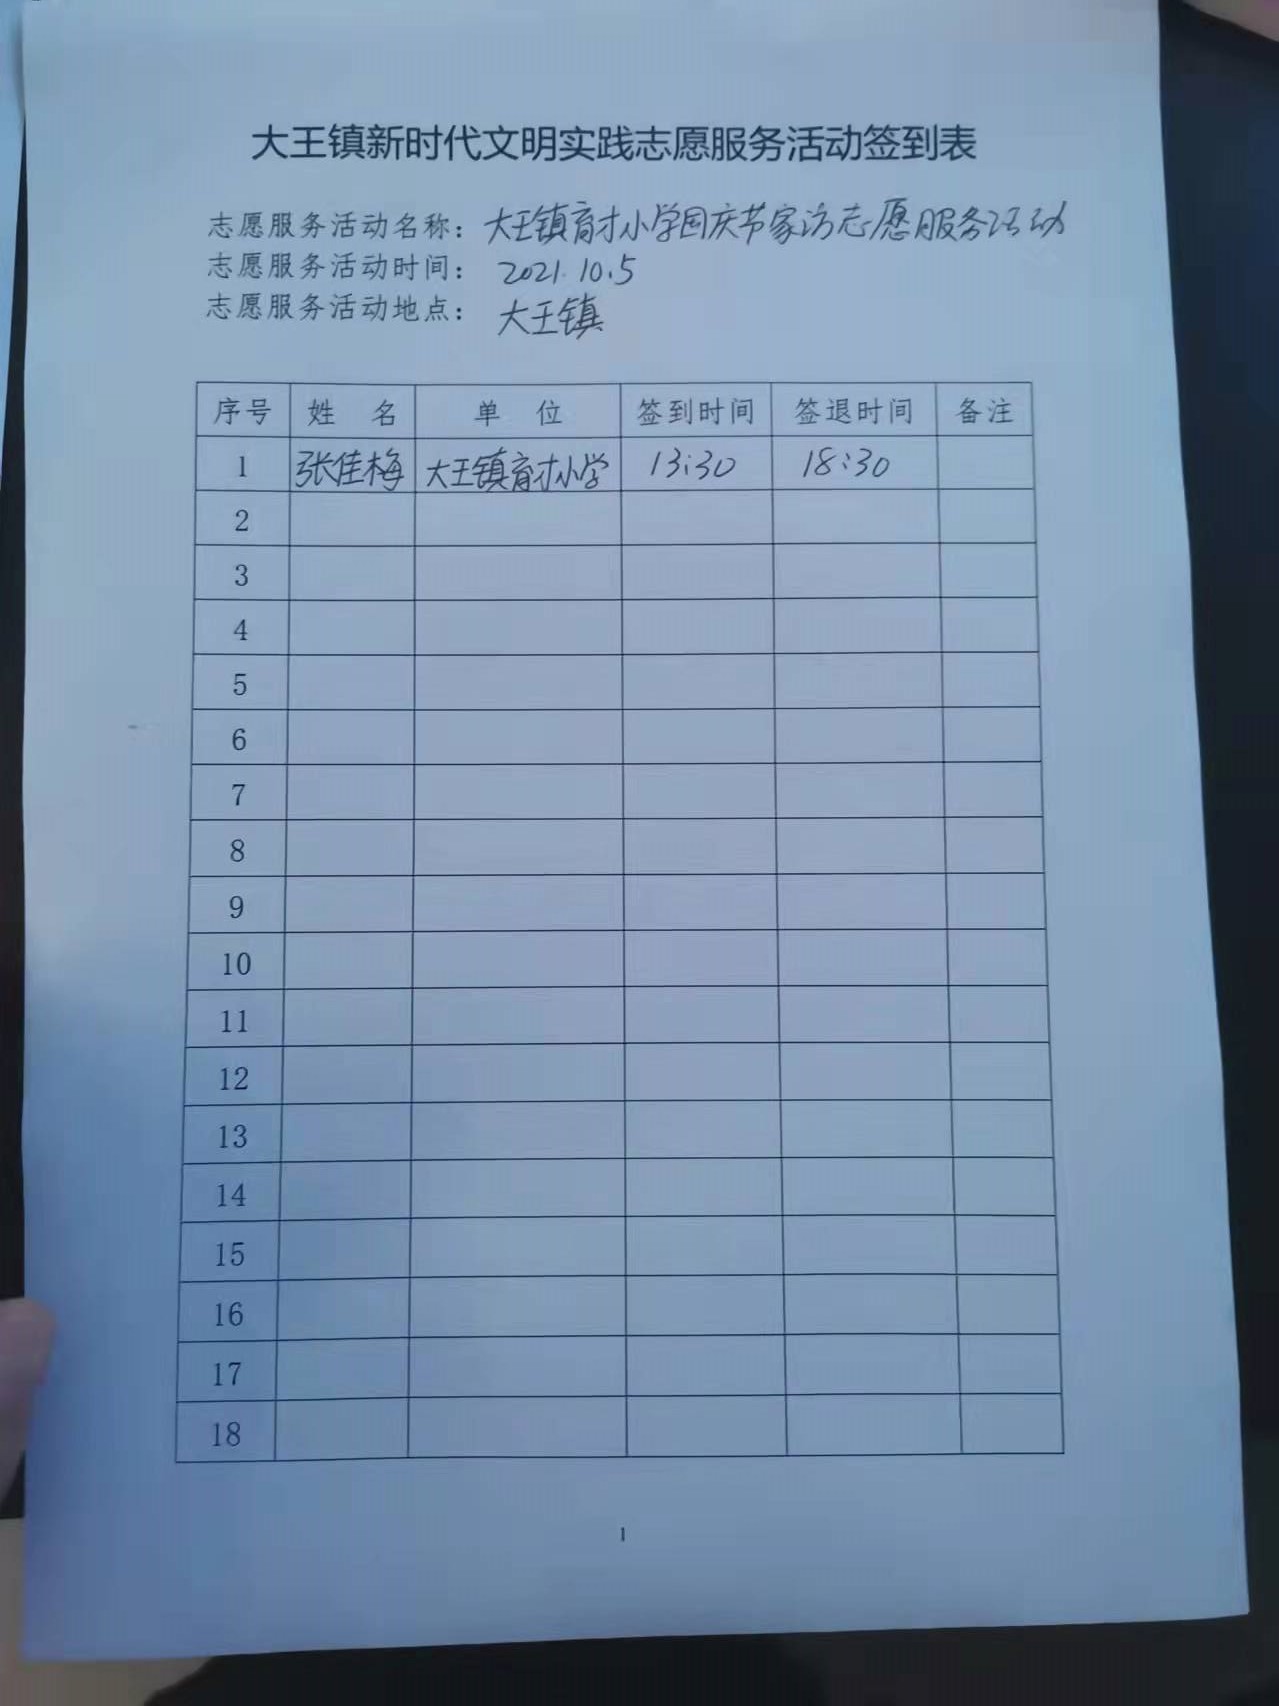 大王镇新时代文明实践志愿服务活动签到表
志愿服务活动名称：大王镇育才小学国庆节家访志愿服务活动
志愿服务活动时间：2021.10.5
志愿服务活动地点：大王镇
序号 姓 名 单 位 签到时间 签退时间 备注
1 张佳梅 大王镇育才小学 13:30 18:30
2
3
4
5
6
7
8
9
10
11
12
13
14
15
16
17
18
1